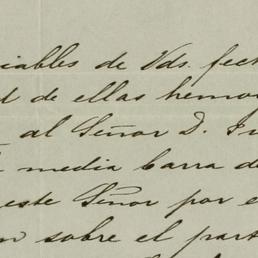 iables de Vds. fech
d de ellas hemo
al Señor D. Fr
media barra de
este Señor por e
n sobre el part